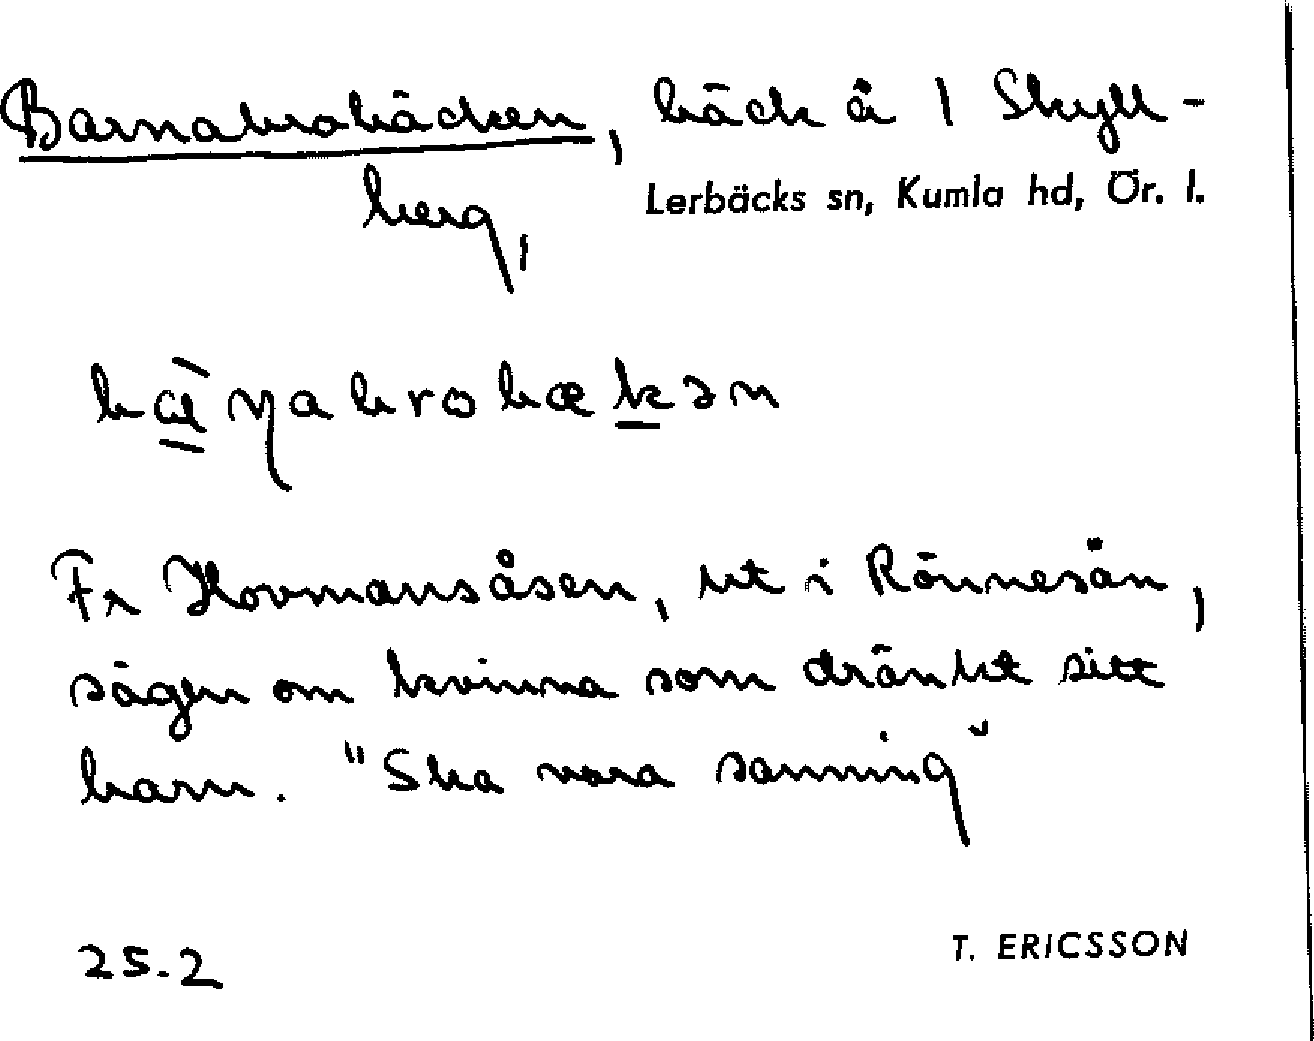 Barnabrobäcken, bäck å 1 Skyll-
berg,
Lerbäcks sn, Kumla hd, Ör. l.
Fr Hovmansåsen, ut i Rönnesån,
sägen om kvinna som dränkt sitt
barn. "Ska vara sanning"
25.2
T. ERICSSON